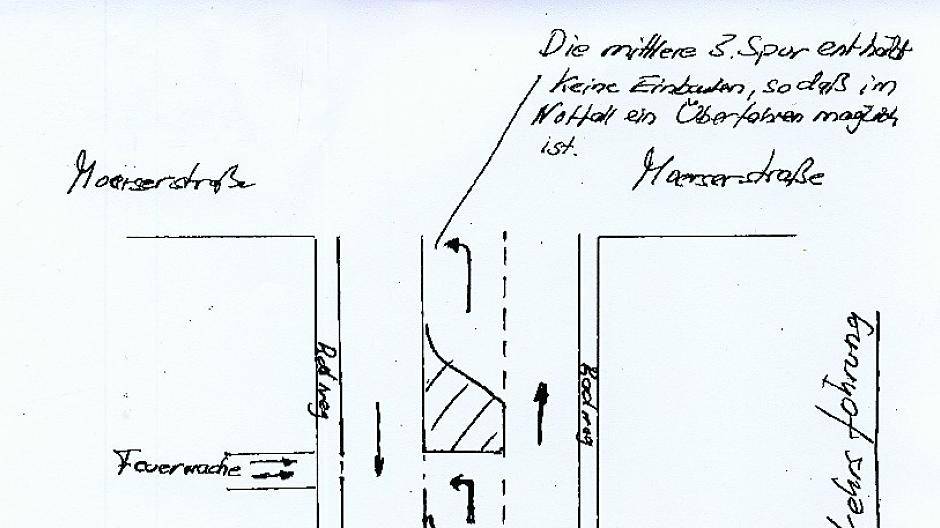 Die mittlere 3. Spur enthält
keine Einbauten, sodaß im
Notfall ein Überfahren möglich
ist.
Moerserstraße
Moerserstraße
Radweg
Radweg
Feuerwache